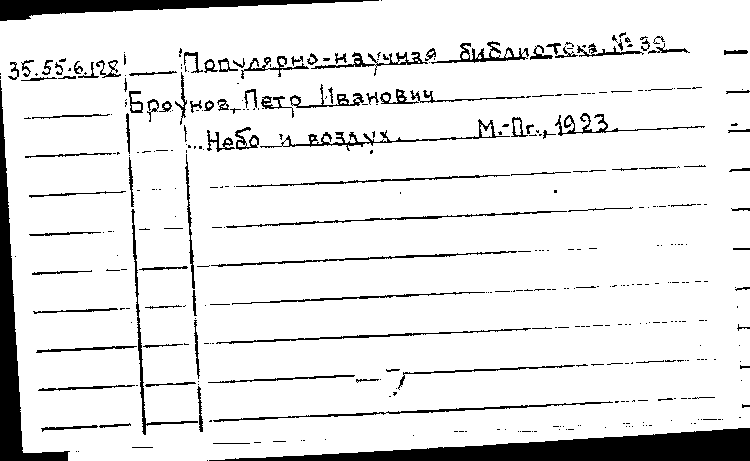 35.55.6.128 Популярно-научная библиотека, № 39
Броунов, Петр Иванович
...Небо и воздух. М.-Пг., 1923.